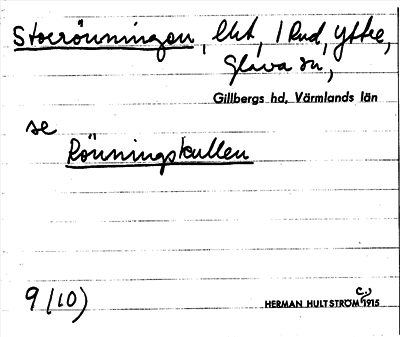 Storrönningen, lht, 1 Rud, Yttre,
Glava sn,
Gillbergs hd, Värmlands län
se
Rönningskullen
9 (10)
HERMAN HULTSTRÖM c., 1915